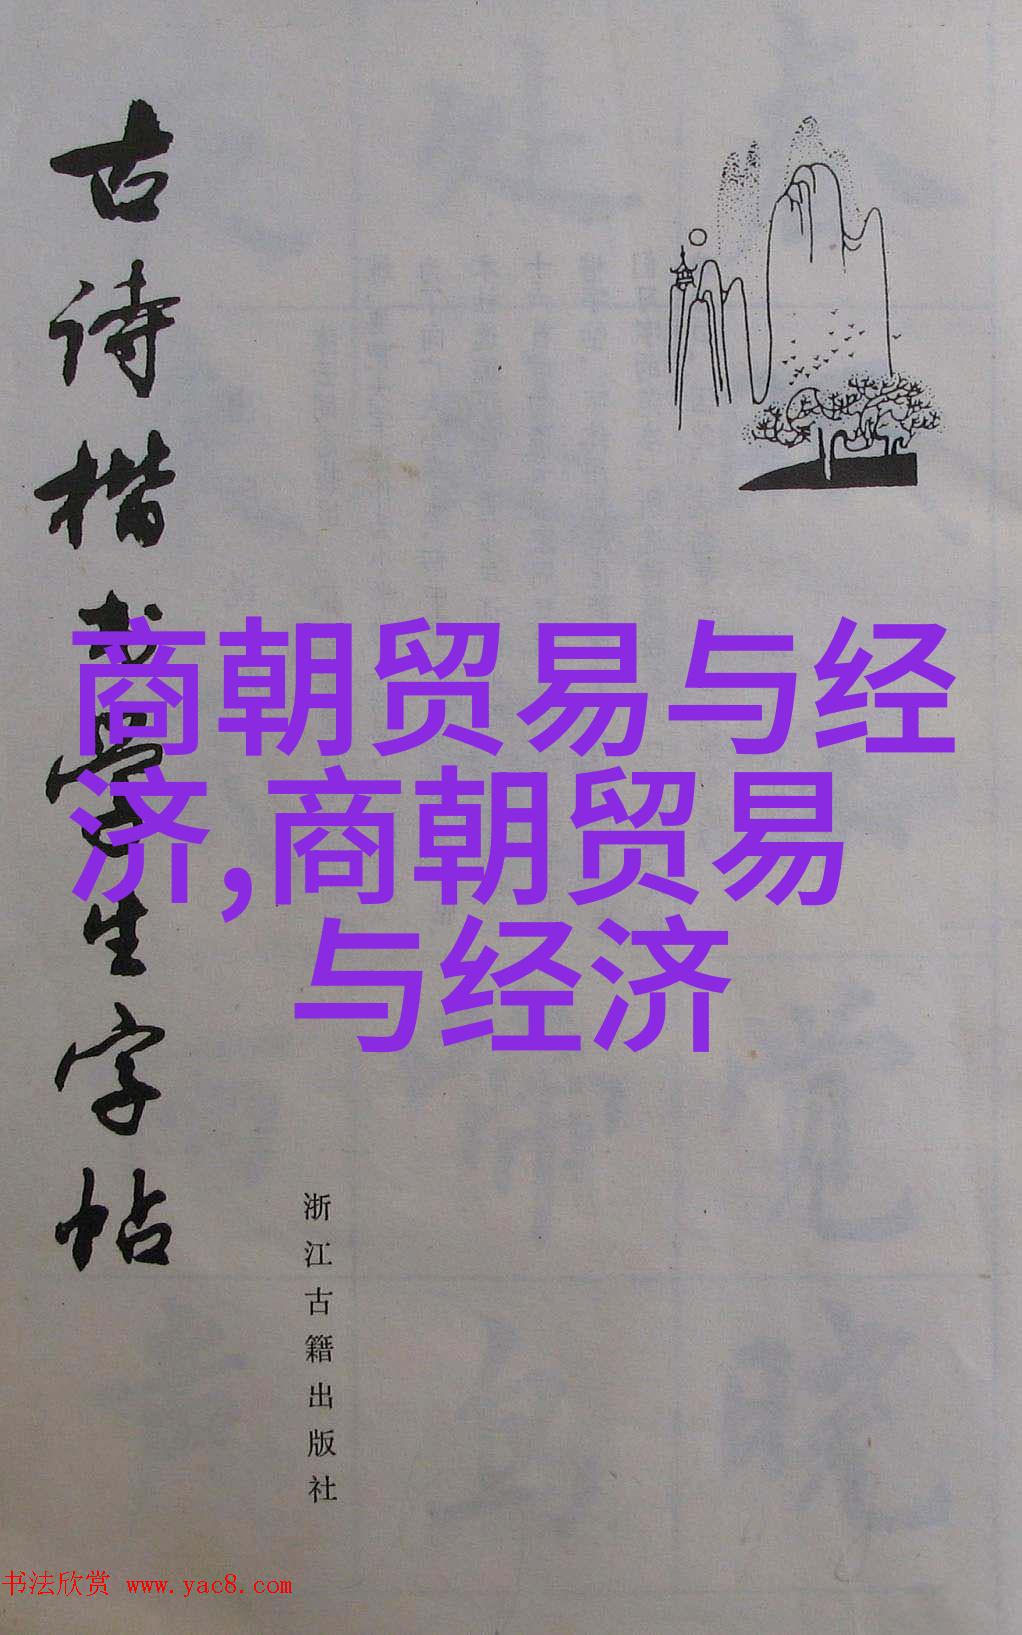 古诗楷书学生字帖
商朝贸易与经
济,商朝贸易
与经济
浙江古籍出版社
书法欣赏 www.yac8.com